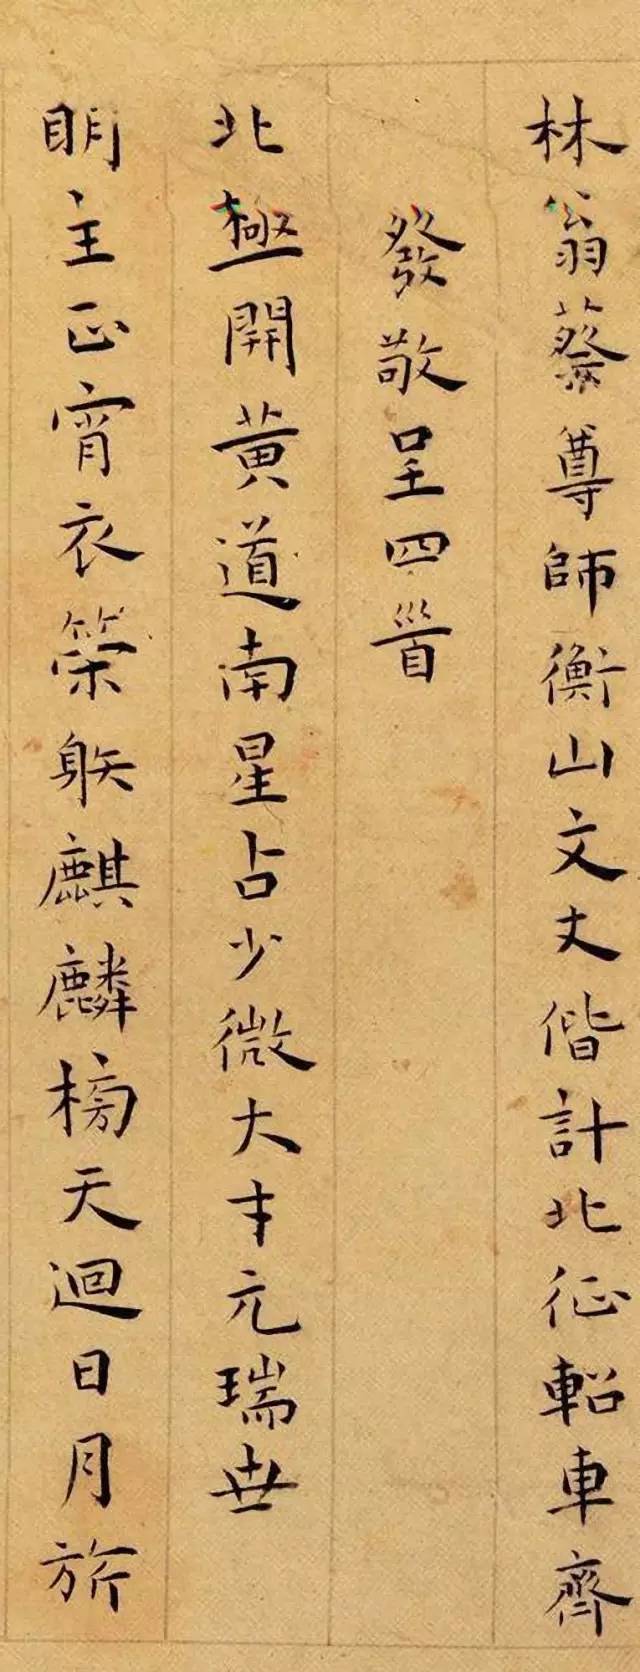 林翁蔡尊師衡山文丈偕計北征軺車齊
發敬呈四首
北極開黃道南星占少微大才元瑞世
明主正宵衣榮躲麒麟榜天迴日月旂